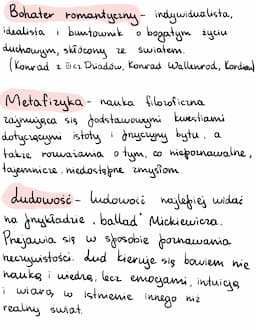 Bohater romantyczny – indywidualista,
idealista i buntownik o bogatym życiu
duchowym, skłócony ze światem.
(Konrad z III cz Dziadów, Konrad Wallenrod, Kordian)
Metafizyka – nauka filozoficzna
zajmująca się podstawowymi kwestiami
dotyczącymi istoty i przyczyny bytu, a
także rozważania o tym, co niepoznawalne,
tajemnicze, niedostępne zmysłom.
Ludowość – ludowość najlepiej widać
na przykładzie „ballad" Mickiewicza.
Przejawia się w sposobie poznawania
rzeczywistości. Lud kieruje się bowiem nie
nauką i wiedzą, lecz emocjami, intuicją
i wiarą w istnienie innego niż
realny świat.